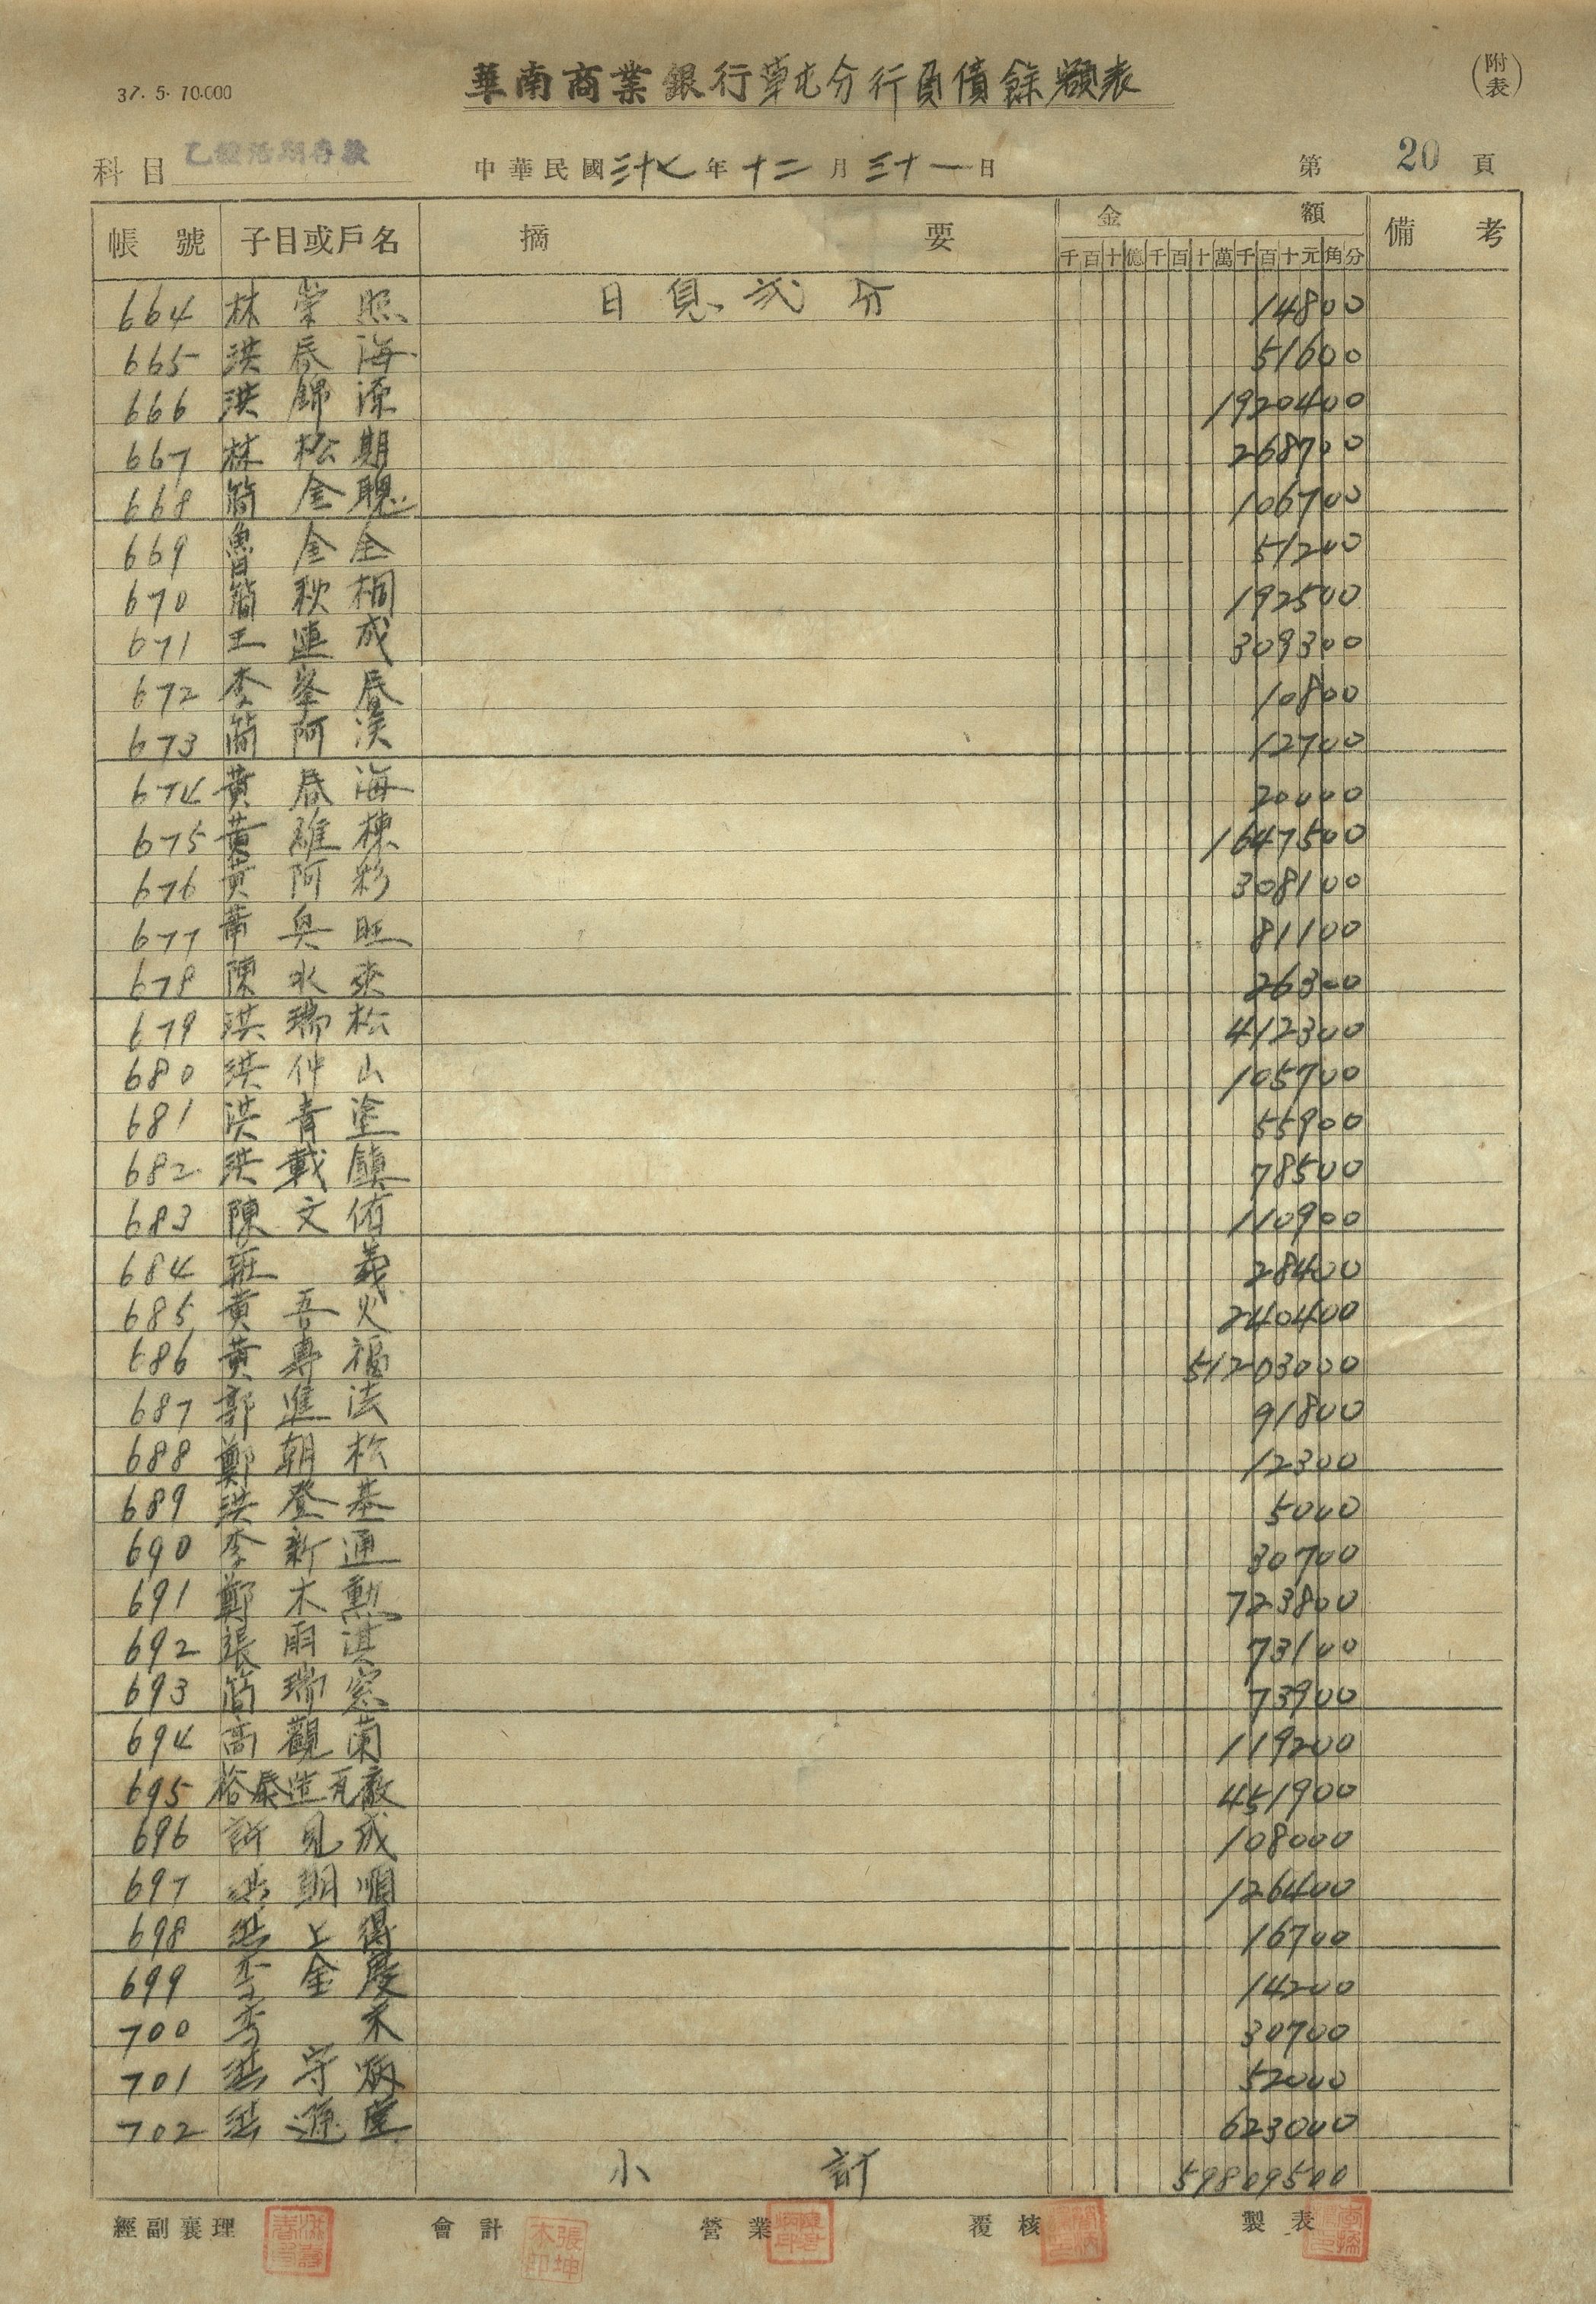 華南商業銀行草屯分行負債餘額表
(附表)
37.5.10.000
科目 乙種活期存款 中華民國三十七年十二月三十一日 第20頁
帳號 子目或戶名 摘要 金額 備考
千百十億千百十萬千百十元角分
664 林崇熙 日息弍分 14800
665 洪辰海 51600
666 洪錦源 1920400
667 林松期 268700
668 簡金聰 106700
669 魯金全 51200
670 簡秋桐 192500
671 王連成 309300
672 李峯 10800
673 簡阿漢 12700
674 黃海 20000
675 黃雄棟 1647500
676 黃阿彩 308100
677 旺 81100
678 陳水來 26300
679 洪瑞松 412300
680 洪仲山 105700
681 洪青塗 55900
682 洪載鎮 78500
683 陳文侑 110900
684 莊義 28400
685 黃吾火 240400
686 黃專福 51203000
687 郭進法 91800
688 鄭朝松 12300
689 洪登基 5000
690 李新通 30700
691 鄭木勳 723800
692 張雨淇 73100
693 簡瑞窓 73900
694 高觀蘭 119200
695 裕泰造瓦廠 451900
696 許見成 108000
697 洪期順 126400
698 洪上得 16700
699 李金慶 14200
700 李木 30700
701 洪守炳 52000
702 洪遜 623000
小計 59809500
經副襄理 會計 營業 覆核 製表
張坤木印